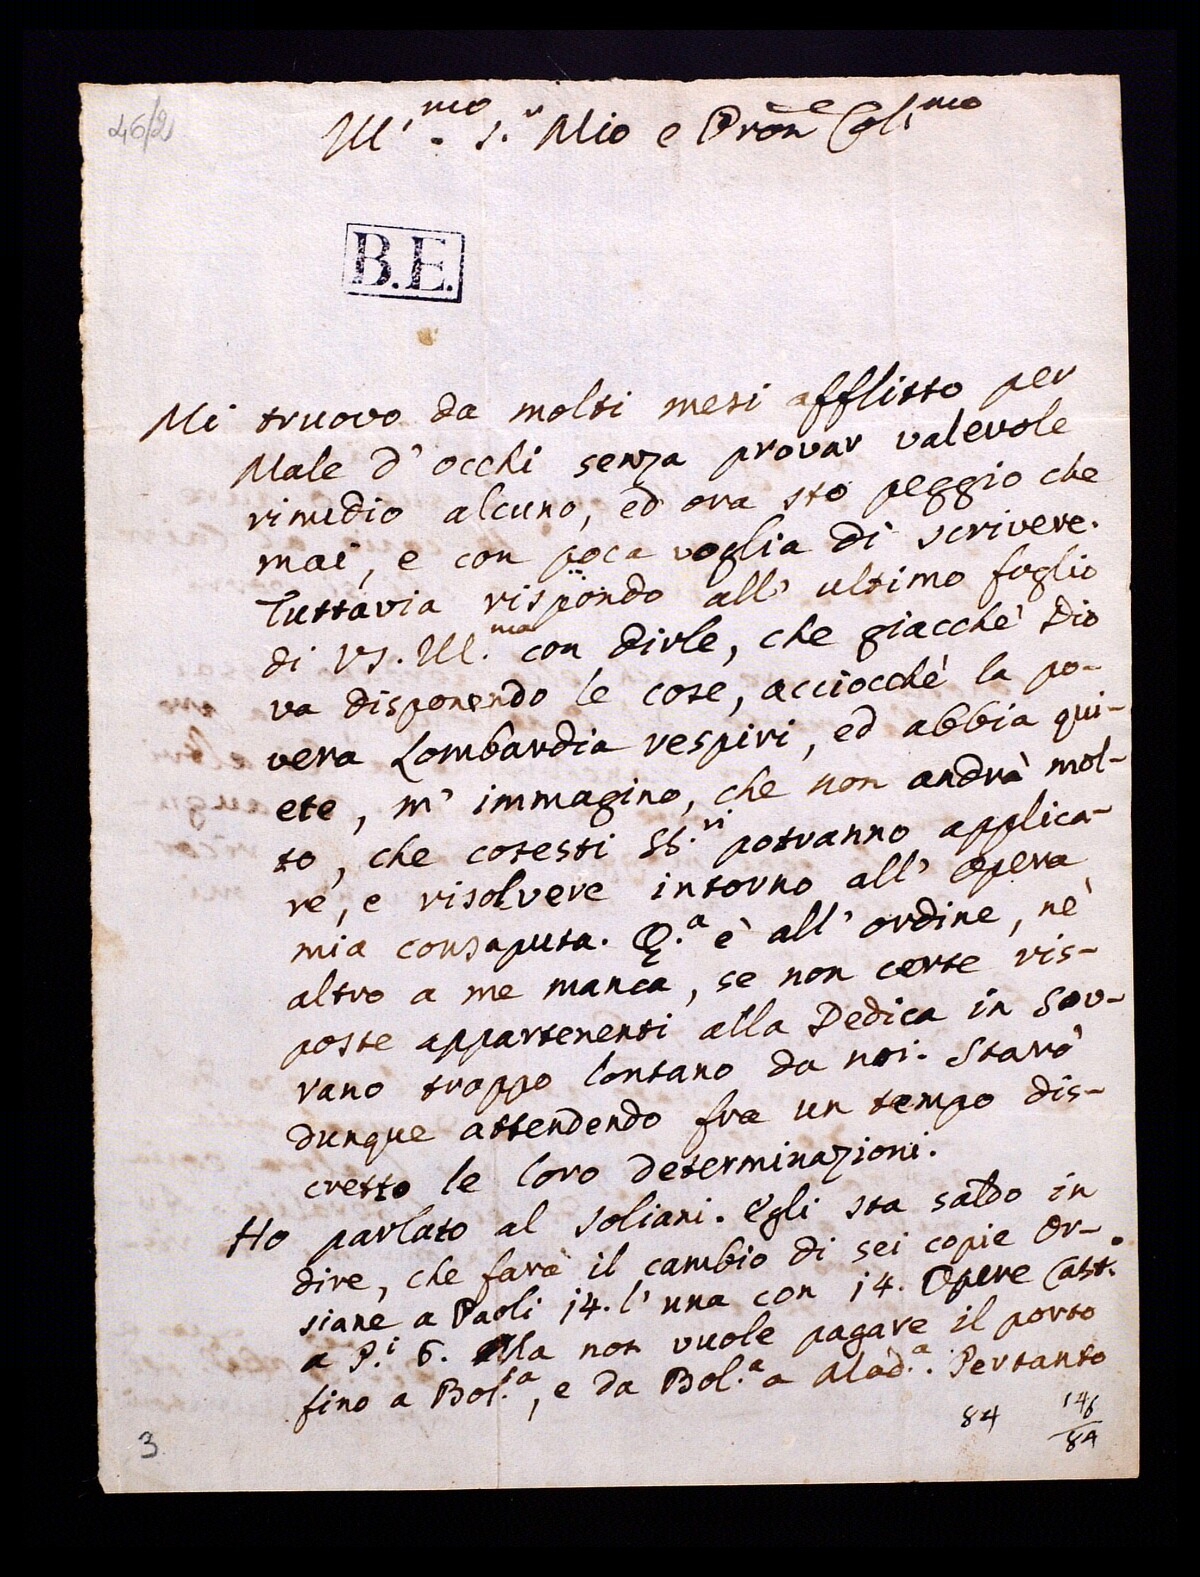 46/2
Ill.mo S.r Mio e Pron.e Col.mo
B.E.
Mi truovo da molti mesi afflitto per
Male d' occhi senza provar valevole
rimedio alcuno, ed ora sto peggio che
mai, e con poca voglia di scrivere.
Tuttavia rispondo all' ultimo foglio
di VS. Ill.ma con dirle, che giacchè Dio
va disponendo le cose, acciocchè la po-
vera Lombardia respiri, ed abbia qui-
ete, m' immagino, che non andrà mol-
to, che cotesti SS.ri potranno applica-
re, e risolvere intorno all' Opera
mia consaputa. Q.a è all' ordine, nè
altro a me manca, se non certe ris-
poste appartenenti alla Dedica in Sov-
rano troppo lontano da noi. Starò
dunque attendendo fra un tempo dis-
cretto le loro determinazioni.
Ho parlato al Soliani. Egli sta saldo in
dire, che farà il cambio di sei copie Or-
siane a Paoli 14. l' una con 14. Opere Cast.
a P.i 6. Ma non vuole pagare il porto
fino a Bol.a, e da Bol.a a Mod.a. Pertanto
84
146
84
3